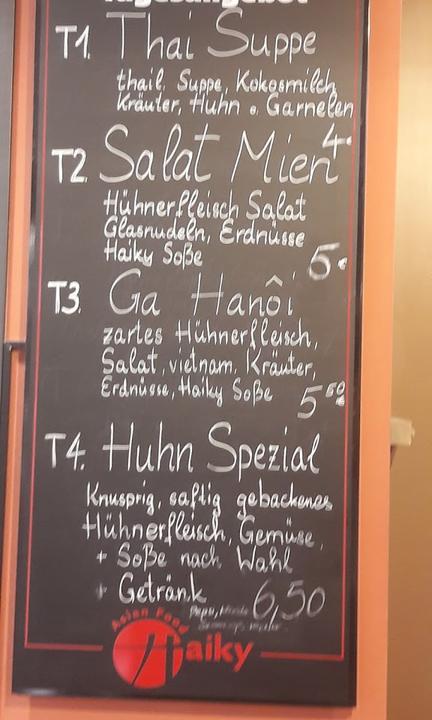 Tagesangebot
T1. Thai Suppe
thail. Suppe, Kokosmilch
Kräuter, Huhn o. Garnelen
4.-
T2 Salat Mien
Hühnerfleisch Salat
Glasnudeln, Erdnüsse
Haiky Soße
5.-
T3. Ga Hanôi
zartes Hühnerfleisch,
Salat, vietnam. Kräuter,
Erdnüsse, Haiky Soße
5 50
T4. Huhn Spezial
Knusprig, saftig gebackenes
Hühnerfleisch, Gemüse,
+ Soße nach Wahl
+ Getränk 6,50
Asian Food
Haiky